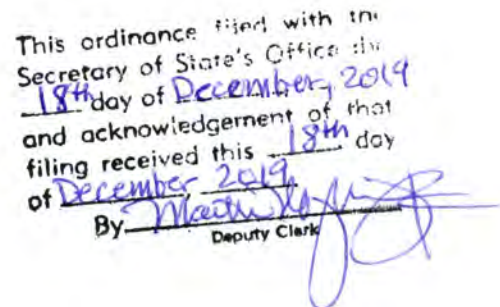 This ordinance filed with the
Secretary of State's Office the
18th day of December, 2019
and acknowledgement of that
filing received this 18th day
of December, 2019
By
Deputy Clerk